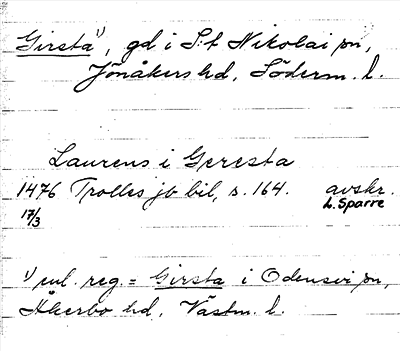 Girsta¹⁾, gd i S:t Nikolai sn,
Jönåkers hd, Söderm. l.
Laurens i Geresta
1476 Trolles jb bil, s. 164. avskr.
17/3 L. Sparre
¹⁾ enl. reg. = Girsta i Odensvi sn,
Åkerbo hd, Västm. l.